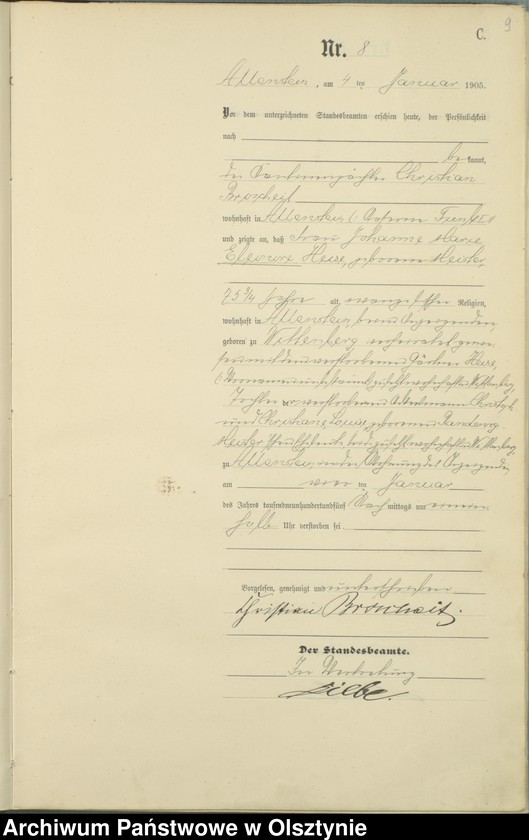 9
C.
Nr. 8
Allenstein, am 4 ten Januar 1905.
Vor dem unterzeichneten Standesbeamten erschien heute, der Persönlichkeit
nach
be kannt,
der Christian
Broscheit
wohnhaft in Allenstein
und zeigte an, daß Frau Johanne Marie
Eleonore Heise, geborene Meister,
75 3/4 Jahre alt, evangelischer Religion,
wohnhaft in Allenstein, beim Anzeigenden
geboren zu Wittenberg, verheiratet gewesen
mit dem verstorbenen Gärtner Heise,
zuletzt wohnhaft in Wittenberg,
Tochter der verstorbenen Christoph
und Christiane Louise, geborenen
Meister zuletzt wohnhaft in Wittenberg,
zu Allenstein, in der Wohnung des Anzeigenden,
am ten Januar
des Jahres tausendneunhundertundfünf Nachmittags um
halb Uhr verstorben sei
Vorgelesen, genehmigt und unterschrieben
Christian Broscheit.
Der Standesbeamte.
In Vertretung
Archiwum Państwowe w Olsztynie